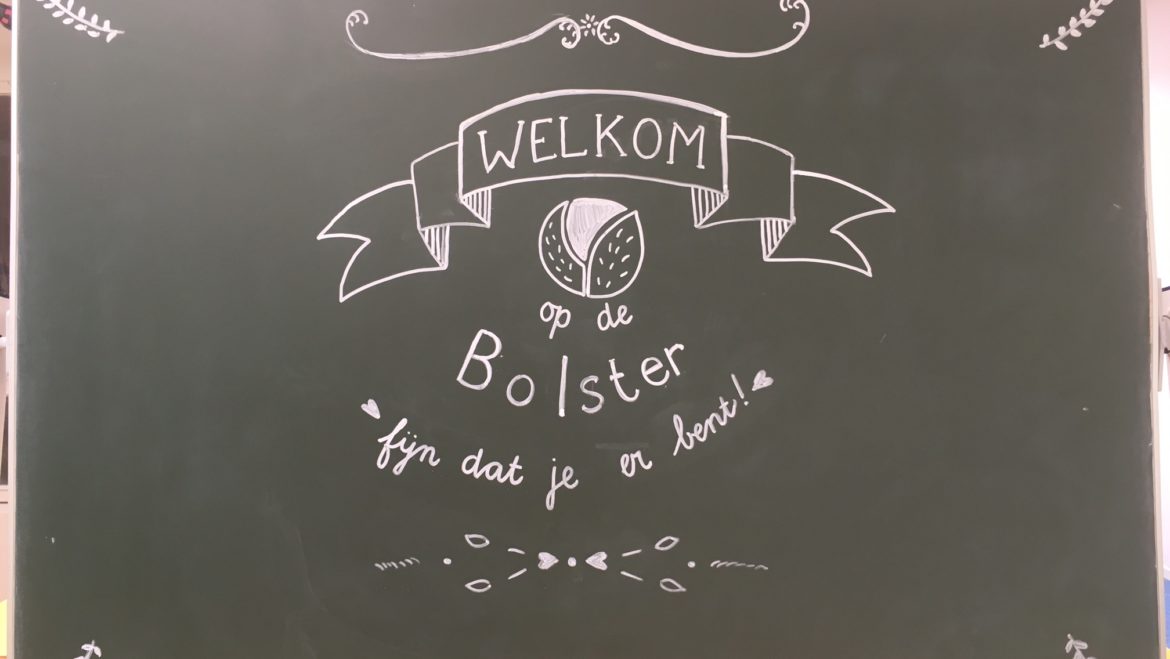 WELKOM
op de
Bolster
fijn dat je er bent!